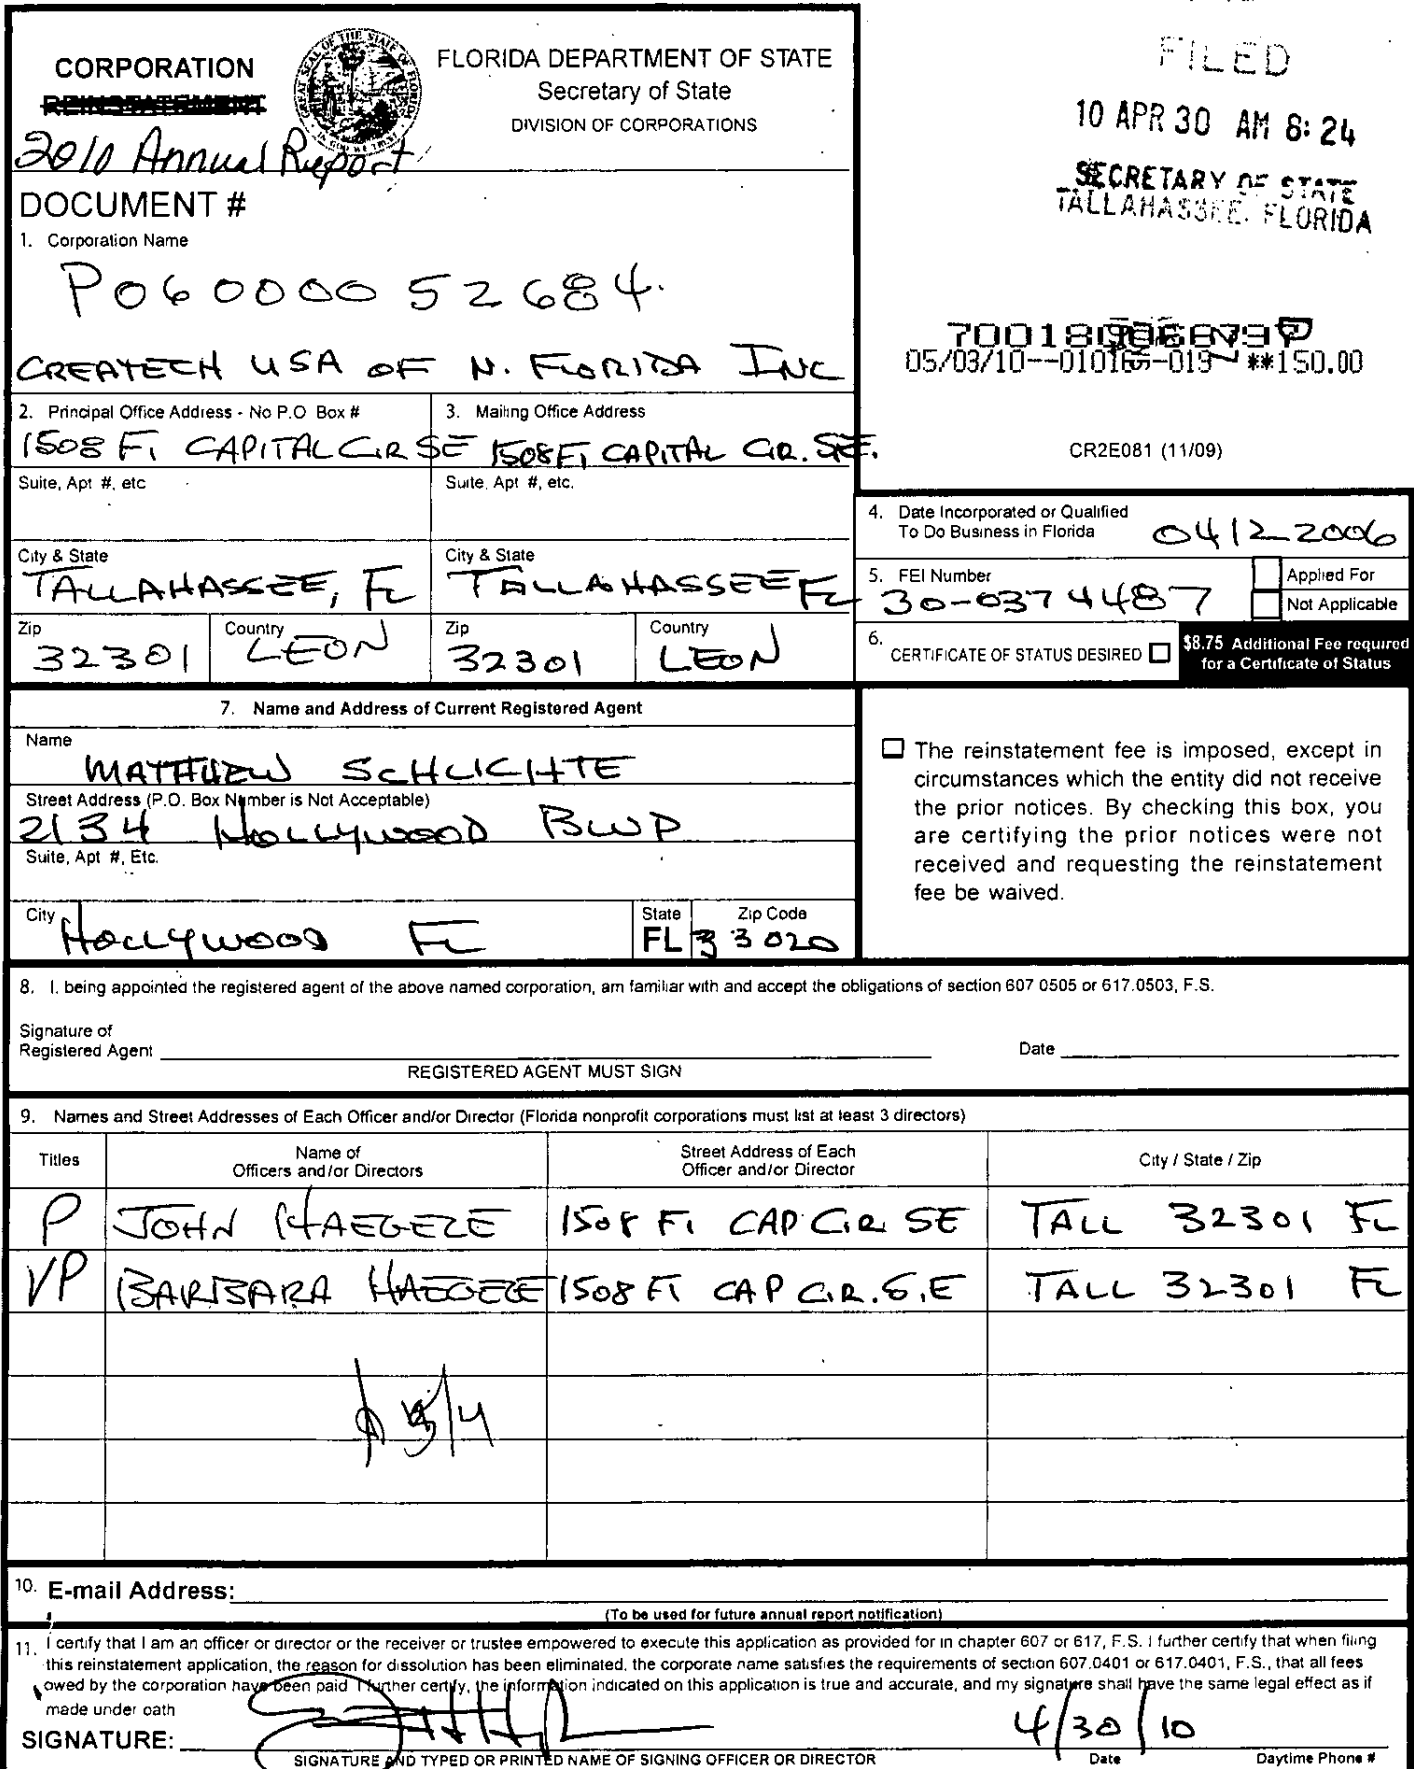 CORPORATION
REINSTATEMENT
2010 Annual Report
FLORIDA DEPARTMENT OF STATE
Secretary of State
DIVISION OF CORPORATIONS
FILED
10 APR 30 AM 8:24
SECRETARY OF STATE
TALLAHASSEE, FLORIDA
DOCUMENT #
1. Corporation Name
P06000052684.
CREATECH USA OF N. FLORIDA INC
05/03/10--01016-019 **150.00
CR2E081 (11/09)
2. Principal Office Address - No P.O Box #
1508 F1 CAPITAL CIR SE
3. Mailing Office Address
1508 F1 CAPITAL CIR. SE.
Suite, Apt #, etc
Suite, Apt #, etc.
City & State
TALLAHASSEE, FL
City & State
TALLAHASSEE FL
Zip
32301
Country
LEON
Zip
32301
Country
LEON
4. Date Incorporated or Qualified
To Do Business in Florida
04122006
5. FEI Number
30-0374487
Applied For
Not Applicable
6. CERTIFICATE OF STATUS DESIRED
$8.75 Additional Fee required
for a Certificate of Status
7. Name and Address of Current Registered Agent
Name
MATTHEW SCHLICHTE
Street Address (P.O. Box Number is Not Acceptable)
2134 HOLLYWOOD BLVD
Suite, Apt #, Etc.
City
HOLLYWOOD FL
State
FL
Zip Code
33020
The reinstatement fee is imposed, except in
circumstances which the entity did not receive
the prior notices. By checking this box, you
are certifying the prior notices were not
received and requesting the reinstatement
fee be waived.
8. I, being appointed the registered agent of the above named corporation, am familiar with and accept the obligations of section 607 0505 or 617.0503, F.S.
Signature of
Registered Agent
Date
REGISTERED AGENT MUST SIGN
9. Names and Street Addresses of Each Officer and/or Director (Florida nonprofit corporations must list at least 3 directors)
Titles
Name of
Officers and/or Directors
Street Address of Each
Officer and/or Director
City / State / Zip
P JOHN HAEGELE 1508 F1 CAP CIR SE TALL 32301 FL
VP BARBARA HAEGELE 1508 F1 CAP CIR. S.E TALL 32301 FL
5/4
10. E-mail Address:
(To be used for future annual report notification)
11. I certify that I am an officer or director or the receiver or trustee empowered to execute this application as provided for in chapter 607 or 617, F.S. I further certify that when filing
this reinstatement application, the reason for dissolution has been eliminated, the corporate name satisfies the requirements of section 607.0401 or 617.0401, F.S., that all fees
owed by the corporation have been paid I further certify, the information indicated on this application is true and accurate, and my signature shall have the same legal effect as if
made under oath
SIGNATURE:
4/30/10
SIGNATURE AND TYPED OR PRINTED NAME OF SIGNING OFFICER OR DIRECTOR
Date
Daytime Phone #